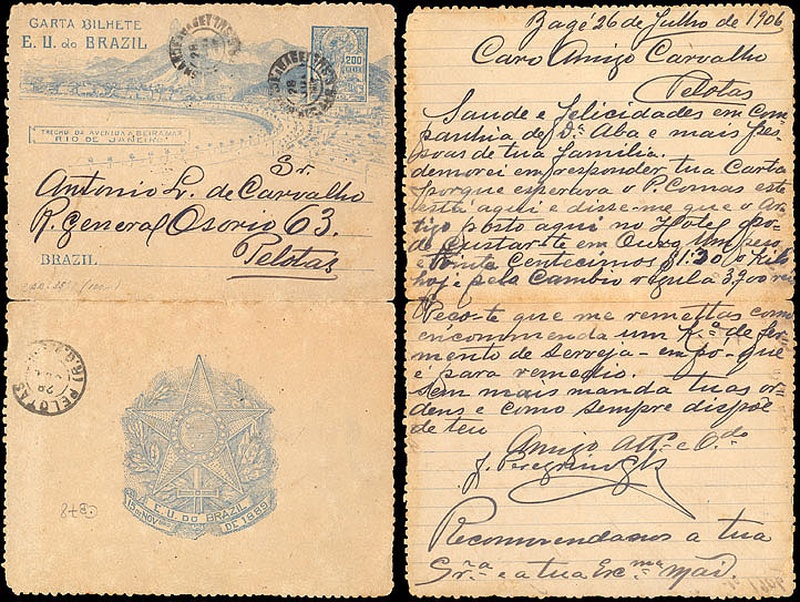 CARTA BILHETE
E. U. do BRAZIL
200
TRECHO DA AVENIDA A BEIRAMAR
RIO DE JANEIRO
Sr.
Antonio L. de Carvalho
R. General Osorio 63.
Pelotas
BRAZIL
PELOTAS
28
E. U. DO BRAZIL
15 DE NOV
DE 1889
CB78
Bagé 26 de Julho de 1906
Caro Amigo Carvalho
Pelotas
Saude e felicidades em com
panhia de Dª Aba e mais pes
soas de tua familia.
demorei em responder tua Carta
porque esperava o P. Comas este
está aqui e disse-me que o Ar
tigo posto aqui no Hotel po-
de custar-te em Ouro Um peso
e trinta Centecimos $1:30 o kilo
hoje pelo Cambio regula 3,900 reis
Peco-te que me remettas como
encommenda um K.º de fer
mento de Serveja - em pó - que
é para remedio.
Sem mais manda tuas or
dens e como sempre dispõe
de teu
Amigo Attº e Oº do
J. Peregrino
Recommendanos a tua
Srª e a tua Exma Mai